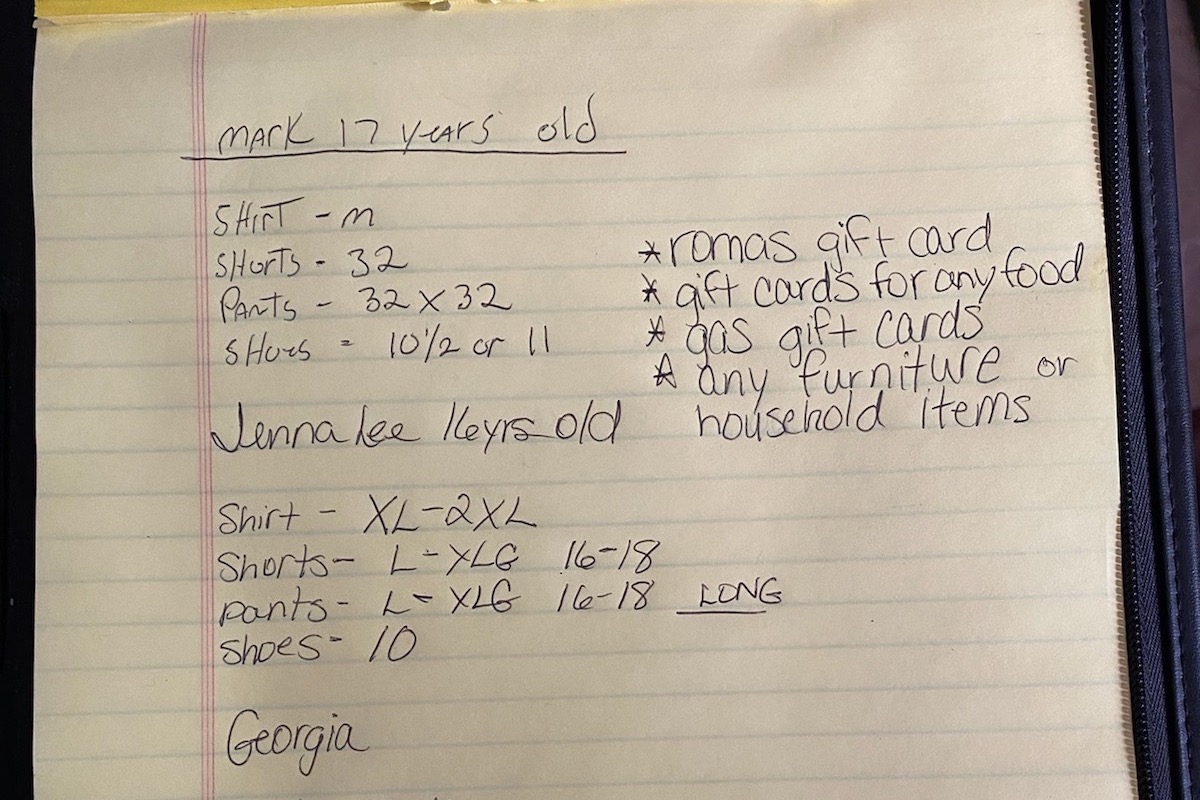 MARK 17 YEARS old
SHIRT - M
SHORTS - 32
PANTS - 32 X 32
SHOES - 10 1/2 or 11
* romas gift card
* gift cards for any food
* gas gift cards
* any furniture or
household items
Jenna Lee 16yrs old
Shirt - XL-2XL
Shorts- L-XLG 16-18
pants- L-XLG 16-18 LONG
Shoes- 10
Georgia